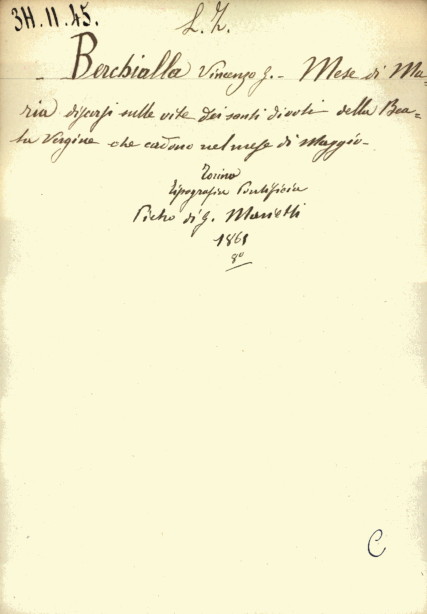 3H.11.45.
L. Z.
Berchialla Vincenzo G. - Mese di Ma-
ria discorsi sulle vite dei santi divoti della Bea-
ta Vergine che cadono nel mese di Maggio -
Torino
Tipografia Pontificia
Pietro di G. Marietti
1861
8º
C